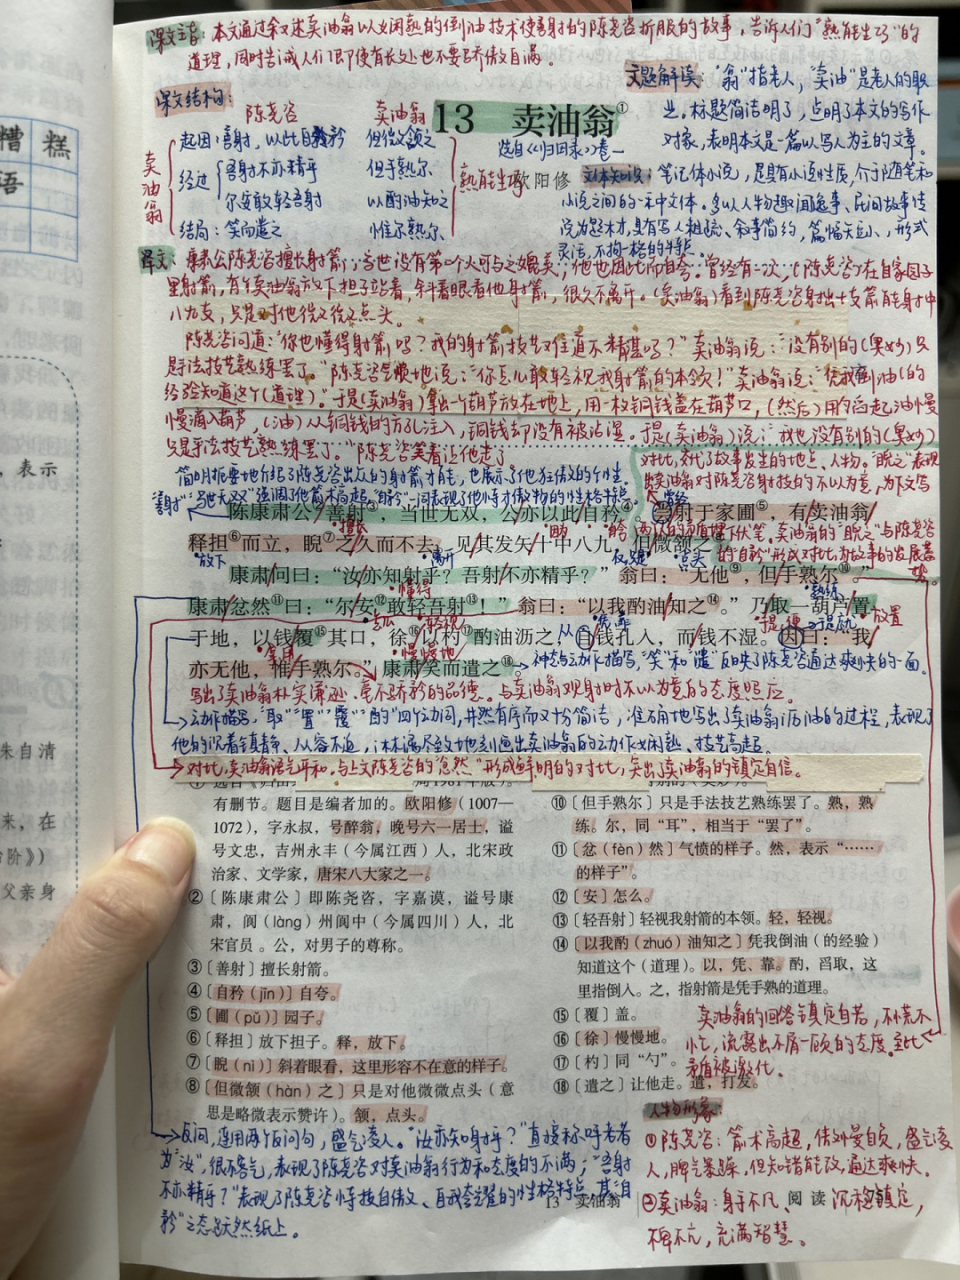 课文主旨：本文通过叙述卖油翁以娴熟的倒油技术使善射的陈尧咨折服的故事，告诉人们“熟能生巧”的
道理，同时告诫人们即使有长处也不要骄傲自满。
文题解读：“翁”指老人，“卖油”是老人的职
业。标题简洁明了，点明了本文的写作
对象，表明本文是一篇以写人为主的文章。
课文结构：
陈尧咨 卖油翁
卖油翁
起因：善射，以此自矜 但微颔之
经过 吾射不亦精乎 但手熟尔
尔安敢轻吾射 以酌油知之
结局：笑而遣之 惟手熟尔
熟能生巧
13 卖油翁①
选自《归田录》卷一
欧阳修
文体知识：笔记体小说，是具有小说性质，介于随笔和
小说之间的一种文体。多以人物趣闻逸事、民间故事传
说为题材，具有写人粗疏、叙事简约，篇幅短小，形式
灵活，不拘一格的特点。
译文：康肃公陈尧咨擅长射箭，当世没有第二个人可与之媲美，他也因此而自夸。曾经有一次，（陈尧咨）在自家园子
里射箭，有个卖油翁放下担子站着，斜着眼看他射箭，很久不离开。（卖油翁）看到陈尧咨射出十支箭能射中
八九支，只是对他微微点点头。
陈尧咨问道：“你也懂得射箭吗？我的射箭技艺难道不精湛吗？”卖油翁说：“没有别的（奥妙）只
是手法技艺熟练罢了。”陈尧咨气愤地说：“你怎么敢轻视我射箭的本领！”卖油翁说：“凭我倒油（的
经验知道这个（道理）。”于是（卖油翁）拿出一个葫芦放在地上，用一枚铜钱盖在葫芦口，（然后）用勺舀起油慢
慢滴入葫芦，（油）从铜钱的方孔注入，铜钱却没有被沾湿。于是（卖油翁）说：“我也没有别的（奥妙）
只是手法技艺熟练罢了。”陈尧咨笑着让他走了
简明扼要地介绍了陈尧咨出众的射箭才能，也展示了他狂傲的个性。
“善射”“当世无双”强调了他箭术高超，“自矜”一词表现了他恃才傲物的性格特点。
对比，交代了故事发生的地点、人物。“睨之”表现
出卖油翁对陈尧咨射技的不以为意，为下文写
卖油翁
埋下伏笔，卖油翁的“睨之”与陈尧咨
的“自矜”形成对比，为故事的发展蓄
势。
陈康肃公②善射③，当世无双，公亦以此自矜④。尝射于家圃⑤，有卖油翁
释担⑥而立，睨⑦之久而不去。见其发矢十中八九，但微颔之⑧。
康肃问曰：“汝亦知射乎？吾射不亦精乎？”翁曰：“无他⑨，但手熟尔⑩。”
康肃忿然⑪曰：“尔安⑫敢轻吾射⑬！”翁曰：“以我酌油知之⑭。”乃取一葫芦置
于地，以钱覆⑮其口，徐⑯以杓⑰酌油沥之，自钱孔入，而钱不湿。因曰：“我
亦无他，惟手熟尔。”康肃笑而遣之⑱。
擅长
放下
离开
懂得
点头
熟练
怎么
轻视
凭、靠
放置
慢慢地
于是、就
神态与动作描写，“笑”和“遣”反映了陈尧咨通达爽快的一面。
写出了卖油翁朴实谦逊、毫不骄矜的品德。与卖油翁观射时不以为意的态度照应。
动作描写，“取”“置”“覆”“酌”四个动词，井然有序而又十分简洁，准确地写出了卖油翁沥油的过程，表现了
他的沉着镇静、从容不迫，淋漓尽致地刻画出卖油翁的动作娴熟、技艺高超。
对比，卖油翁语气平和，与上文陈尧咨的“忿然”形成鲜明的对比，突出了卖油翁的镇定自信。
有删节。题目是编者加的。欧阳修（1007—
1072），字永叔，号醉翁，晚号六一居士，谥
号文忠，吉州永丰（今属江西）人，北宋政
治家、文学家，唐宋八大家之一。
②〔陈康肃公〕即陈尧咨，字嘉谟，谥号康
肃，阆（làng）州阆中（今属四川）人，北
宋官员。公，对男子的尊称。
③〔善射〕擅长射箭。
④〔自矜（jīn）〕自夸。
⑤〔圃（pǔ）〕园子。
⑥〔释担〕放下担子。释，放下。
⑦〔睨（nì）〕斜着眼看，这里形容不在意的样子。
⑧〔但微颔（hàn）之〕只是对他微微点头（意
思是略微表示赞许）。颔，点头。
⑩〔但手熟尔〕只是手法技艺熟练罢了。熟，熟
练。尔，同“耳”，相当于“罢了”。
⑪〔忿（fèn）然〕气愤的样子。然，表示“……
的样子”。
⑫〔安〕怎么。
⑬〔轻吾射〕轻视我射箭的本领。轻，轻视。
⑭〔以我酌（zhuó）油知之〕凭我倒油（的经验）
知道这个（道理）。以，凭、靠。酌，舀取，这
里指倒入。之，指射箭是凭手熟的道理。
⑮〔覆〕盖。
⑯〔徐〕慢慢地。
⑰〔杓〕同“勺”。
⑱〔遣之〕让他走。遣，打发。
卖油翁的回答镇定自若，不慌不
忙，流露出不屑一顾的态度。至此
矛盾被激化。
反问，连用两个反问句，盛气凌人。“汝亦知射乎？”直接称呼老者
为“汝”，很不客气，表现了陈尧咨对卖油翁行为和态度的不满；“吾射
不亦精乎？”表现了陈尧咨恃技自傲、自我夸耀的性格特点，其“自
矜”之态跃然纸上。
人物形象：
①陈尧咨：箭术高超，傲慢自负，盛气凌
人，脾气暴躁，但知错能改，通达爽快。
②卖油翁：身手不凡，沉稳镇定，
不卑不亢，充满智慧。
13 卖油翁
阅读
糟 糕
语
，表示
朱自清
来，在
台阶》）
父亲身